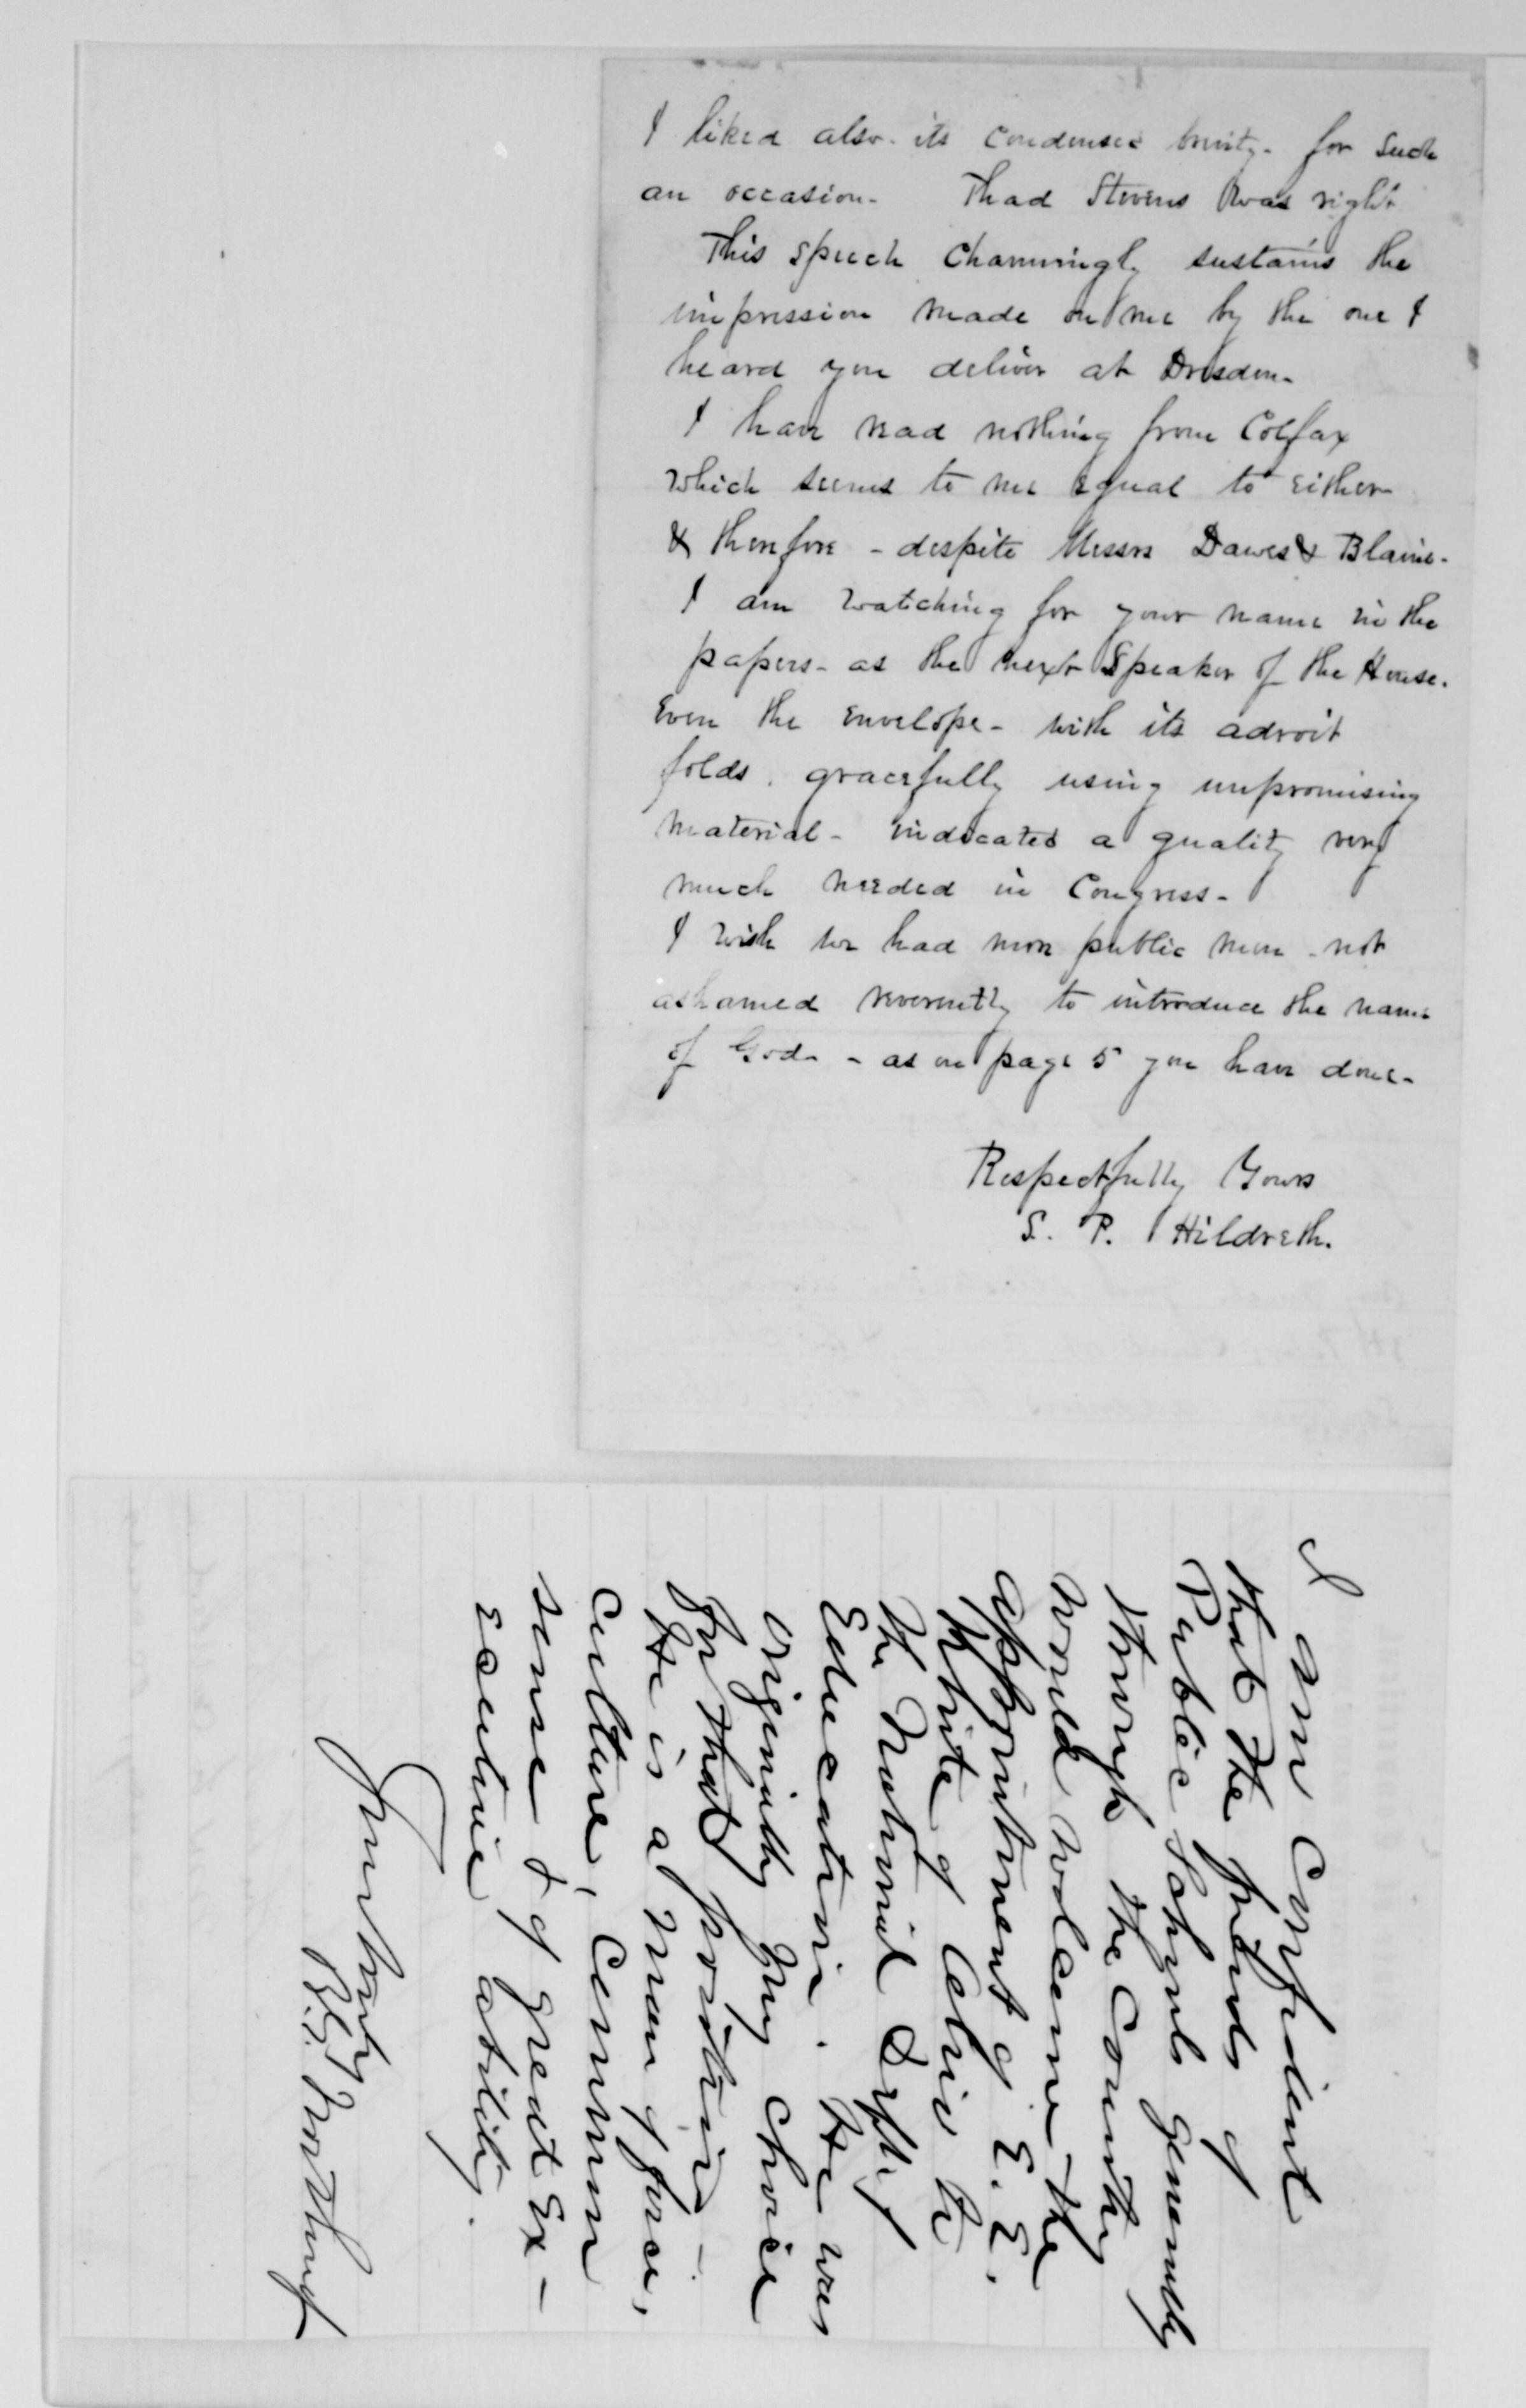 I liked also its condensed brevity - for such
an occasion - Thad Stevens was right
This speech charmingly sustains the
impression made on me by the one I
heard you deliver at Dresden -
I have read nothing from Colfax
which seems to me equal to either
& therefore - despite Messrs Dawes & Blaine -
I am watching for your name in the
papers - as the next Speaker of the House.
Even the envelope - with its adroit
folds, gracefully using unpromising
material - indicated a quality very
much needed in Congress -
I wish we had more public men - not
ashamed reverently to introduce the name
of God - as on page 5 you have done -
Respectfully Yours
S. P. Hildreth.
I am confident
that the friends of
Public Schools generally
through the Country
would welcome the
appointment of E. E.
White of Ohio to
the National Dept of
Education. He was
originally my choice
for that position -
He is a man of force,
culture, common
sense & of great ex-
ecutive ability.
Yours truly
B. G. Northrop